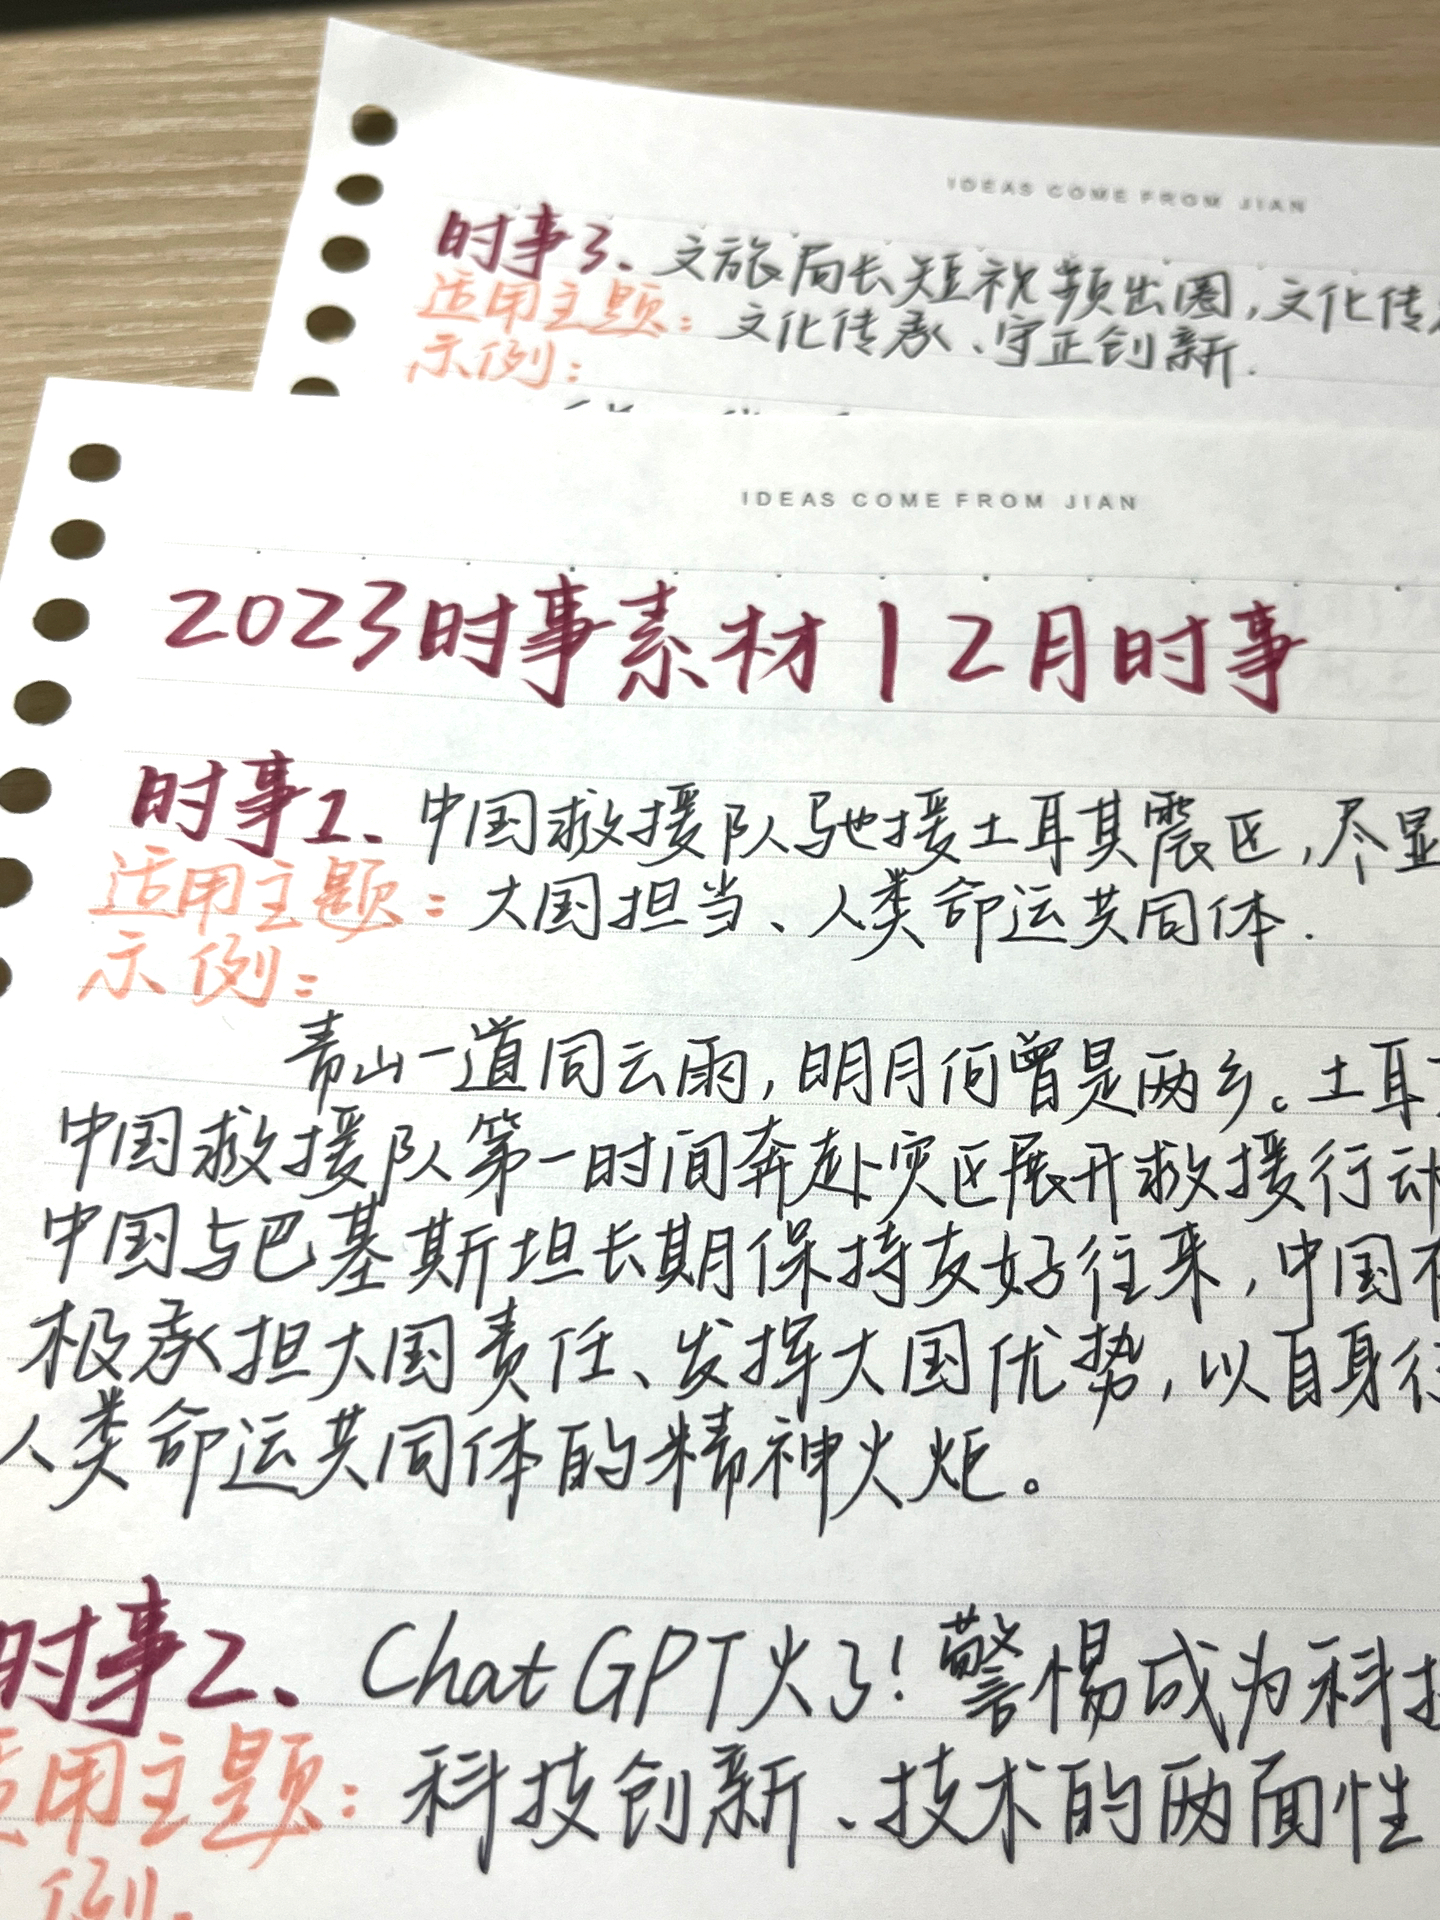 IDEAS COME FROM JIAN
时事3、文旅局长短视频出圈,文化传
适用主题:文化传承、守正创新.
示例:
IDEAS COME FROM JIAN
2023时事素材|2月时事
时事1、中国救援队驰援土耳其震区,尽显
适用主题:大国担当、人类命运共同体.
示例:
青山一道同云雨,明月何曾是两乡。土耳
中国救援队第一时间奔赴灾区展开救援行动
中国与巴基斯坦长期保持友好往来,中国
极承担大国责任、发挥大国优势,以自身行
人类命运共同体的精神火炬。
时事2、ChatGPT火了!警惕成为科技
适用主题:科技创新、技术的两面性
例: